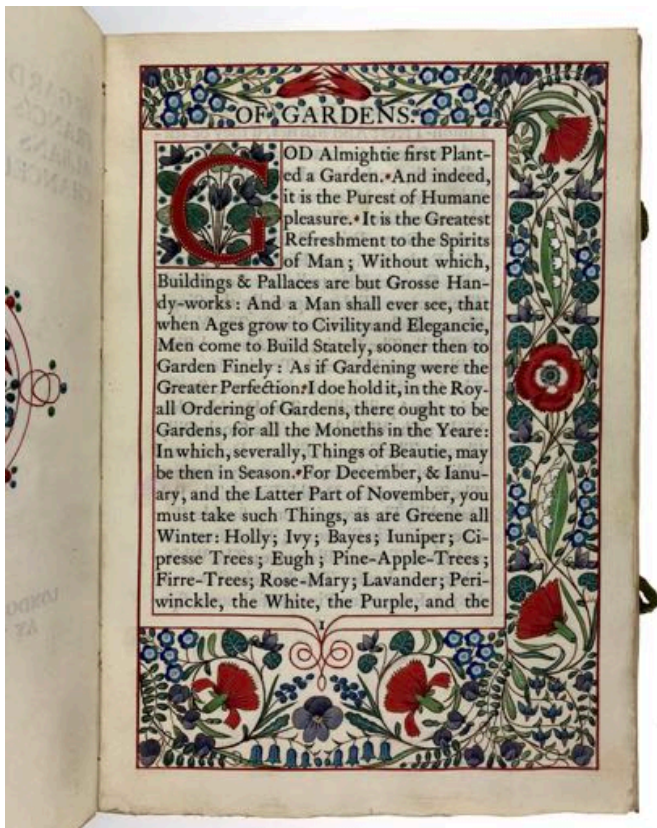 OF GARDENS.
GOD Almightie first Plant-
ed a Garden. And indeed,
it is the Purest of Humane
pleasure. It is the Greatest
Refreshment to the Spirits
of Man; Without which,
Buildings & Pallaces are but Grosse Han-
dy-works: And a Man shall ever see, that
when Ages grow to Civility and Elegancie,
Men come to Build Stately, sooner then to
Garden Finely: As if Gardening were the
Greater Perfection. I doe hold it, in the Roy-
all Ordering of Gardens, there ought to be
Gardens, for all the Moneths in the Yeare:
In which, severally, Things of Beautie, may
be then in Season. For December, & Ianu-
ary, and the Latter Part of November, you
must take such Things, as are Greene all
Winter: Holly; Ivy; Bayes; Iuniper; Ci-
presse Trees; Eugh; Pine-Apple-Trees;
Firre-Trees; Rose-Mary; Lavander; Peri-
winckle, the White, the Purple, and the
1